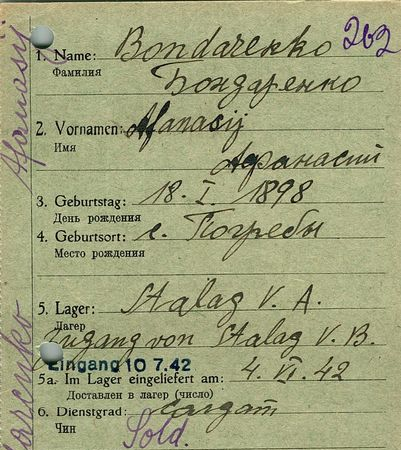 1. Name: Bondarenko 262
Фамилия Бондаренко
2. Vornamen: Afanasij
Имя Афанасий
3. Geburtstag: 18. I. 1898
День рождения
4. Geburtsort: с. Погребы
Место рождения
5. Lager: Stalag V. A.
Лагер
Zugang von Stalag V. B.
Eingang 10 7.42
5a. Im Lager eingeliefert am: 4. VI. 42
Доставлен в лагер (число)
6. Dienstgrad: солдат
Чин Sold.
Afanasij